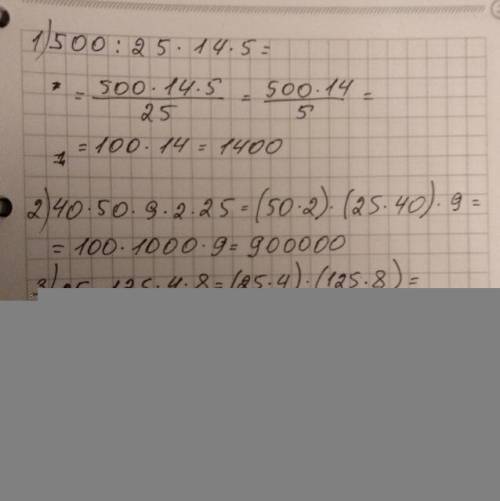 1) 500 : 25 · 14 · 5 =
= 500 · 14 · 5 / 25 = 500 · 14 / 5 =
= 100 · 14 = 1400
2) 40 · 50 · 9 · 2 · 25 = (50 · 2) · (25 · 40) · 9 =
= 100 · 1000 · 9 = 900000
3) 25 · 125 · 4 · 8 = (25 · 4) · (125 · 8) =